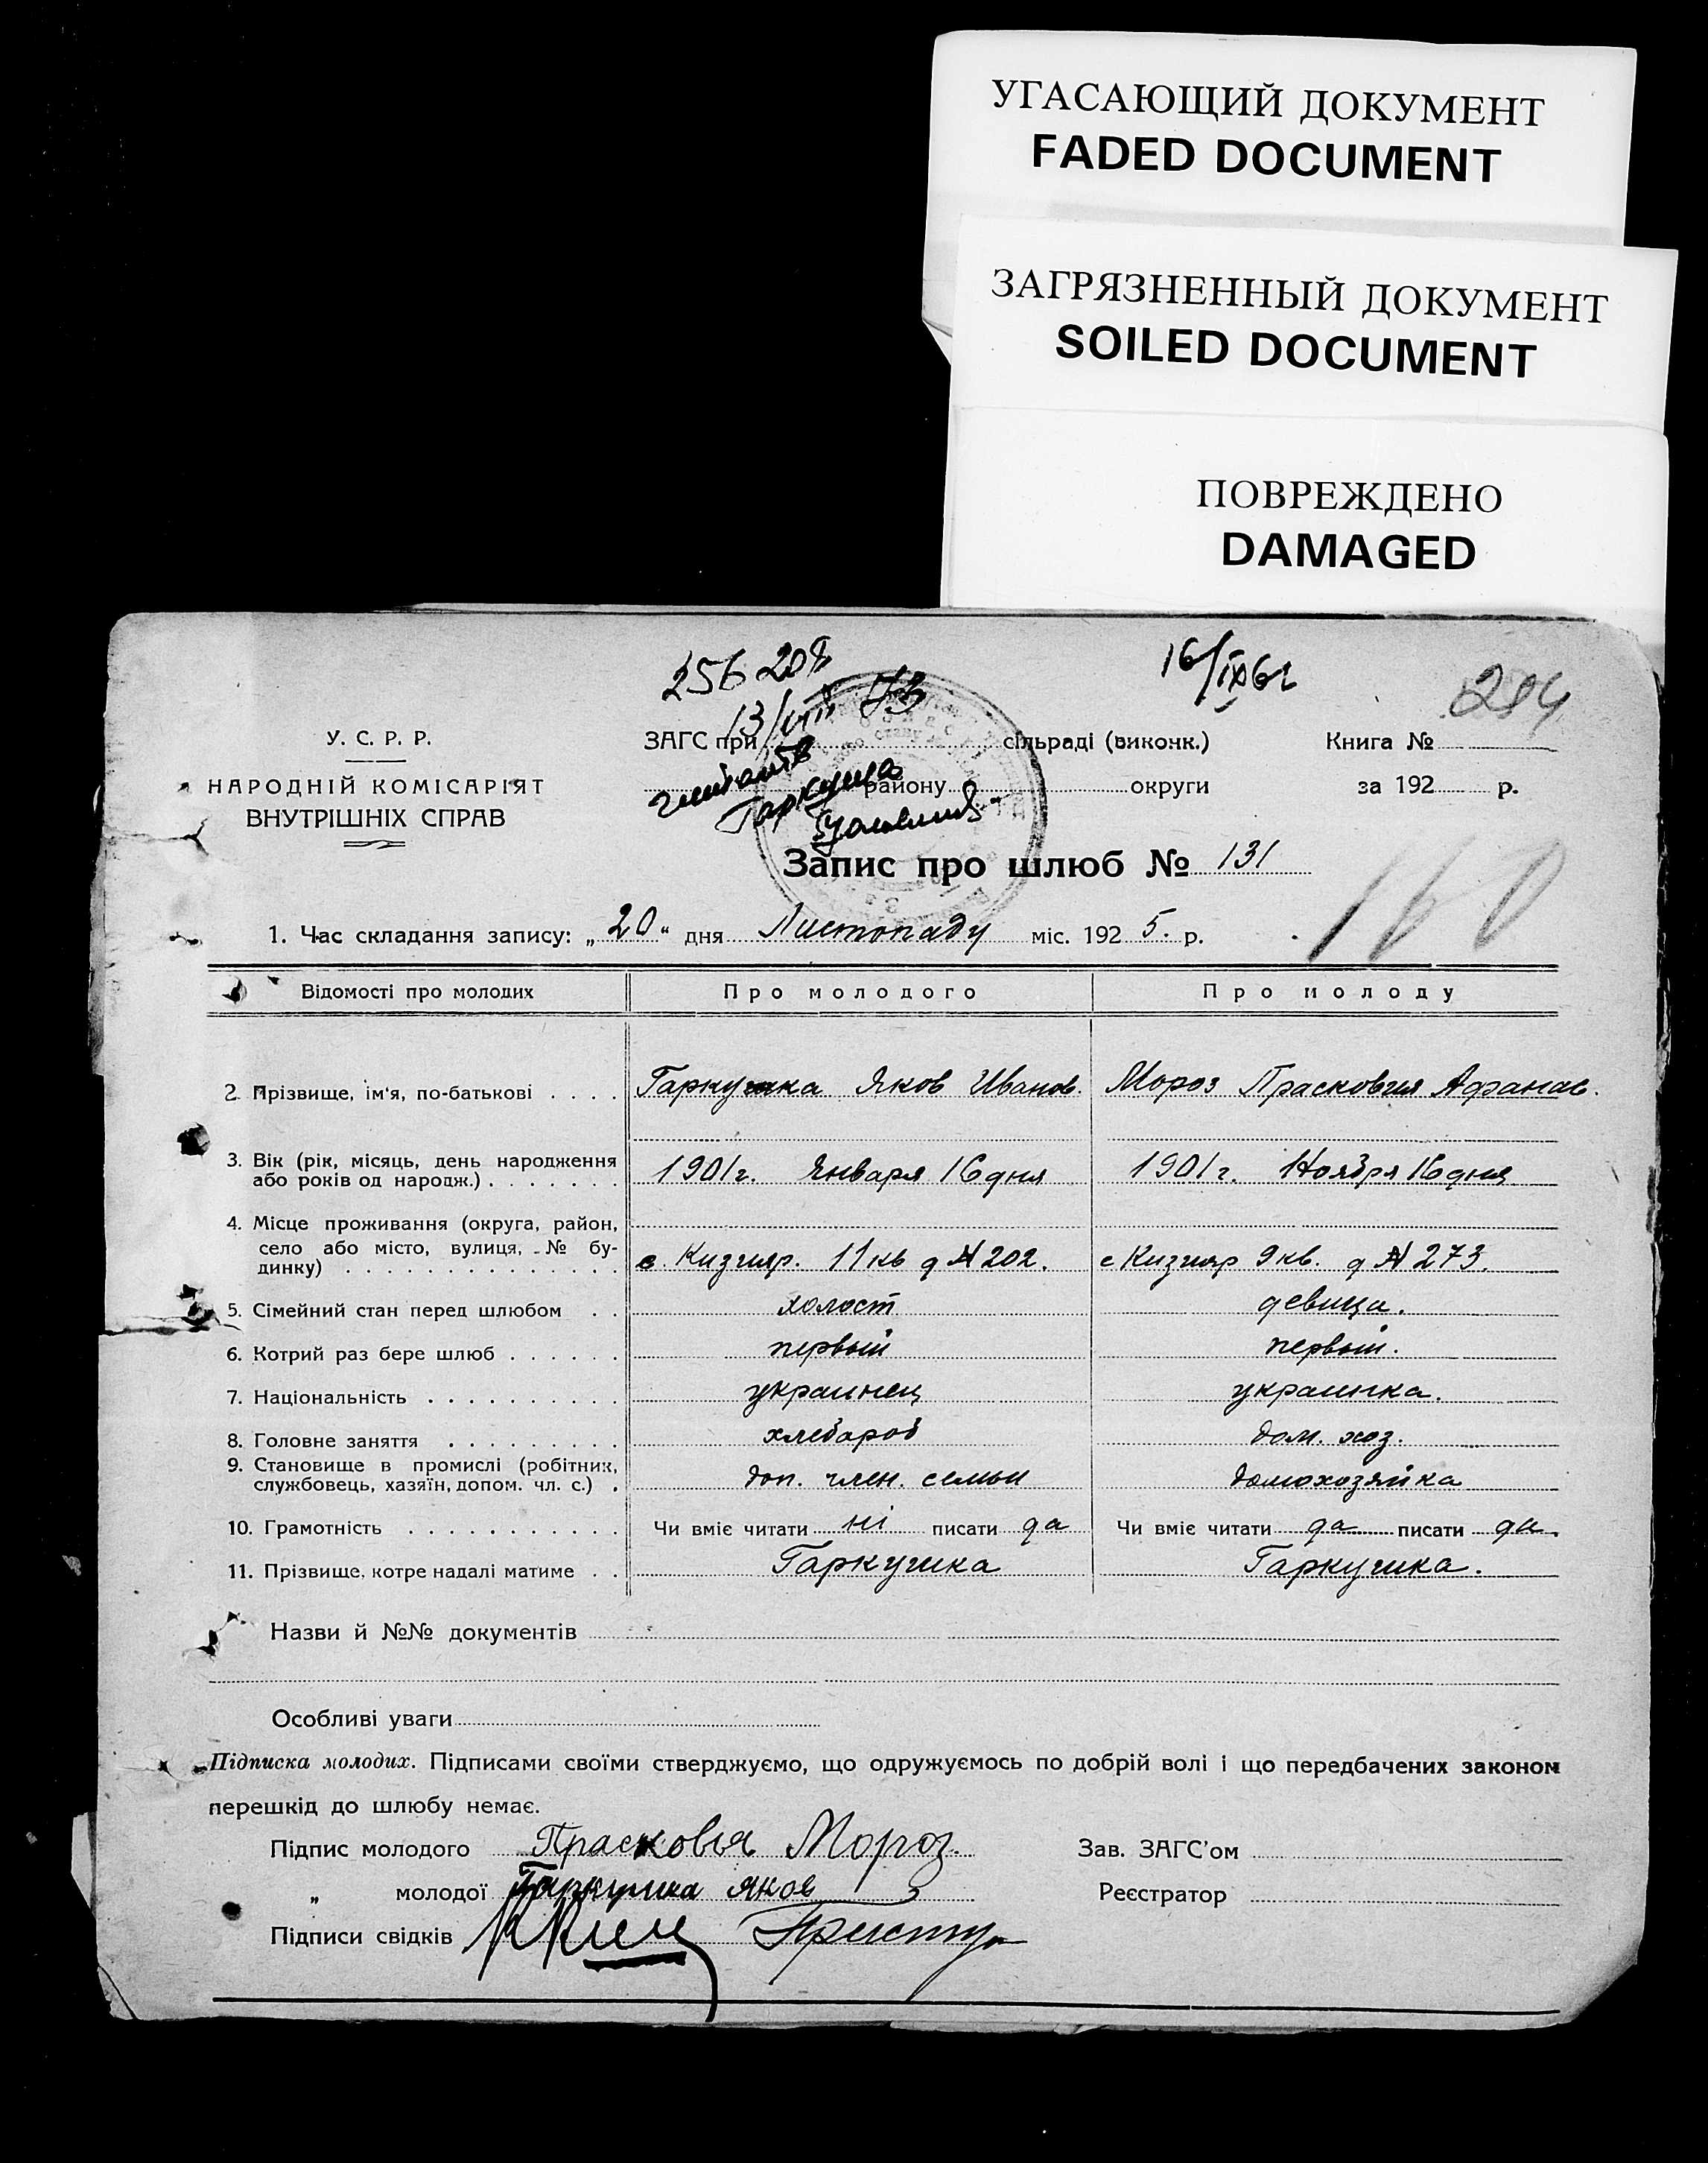 УГАСАЮЩИЙ ДОКУМЕНТ
FADED DOCUMENT
ЗАГРЯЗНЕННЫЙ ДОКУМЕНТ
SOILED DOCUMENT
ПОВРЕЖДЕНО
DAMAGED
256 208
13/VIII 73
16/IX 61
284
У. С. Р. Р.
НАРОДНІЙ КОМІСАРІЯТ
ВНУТРІШНІХ СПРАВ
ЗАГС при сільраді (виконк.)
району округи
Книга №
за 192 р.
читать
Гаркуша
Запис про шлюб № 131
160
1. Час складання запису: „20“ дня Листопаду міс. 1925. р.
Відомості про молодих Про молодого Про молоду
2. Прізвище, ім'я, по-батькові . . . . Гаркушка Яков Иванов. Мороз Прасковия Афанас.
3. Вік (рік, місяць, день народження
або років од народж.) . . . . . . . 1901г. Января 16 дня 1901 г. Ноября 16 дня
4. Місце проживання (округа, район,
село або місто, вулиця, № бу-
динку) . . . . . . . . . . . . . . с. Кизияр. 11 кв д № 202. с Кизияр 9 кв. д № 273.
5. Сімейний стан перед шлюбом . . холост девица.
6. Котрий раз бере шлюб . . . . . . первый первый.
7. Національність . . . . . . . . . . украинец украинка.
8. Головне заняття . . . . . . . . . хлебароб дом. хоз.
9. Становище в промислі (робітник,
службовець, хазяїн, допом. чл. с.) . доп. член. семьи домохозяйка
10. Грамотність . . . . . . . . . . . Чи вміє читати ні писати да Чи вміє читати да писати да.
11. Прізвище, котре надалі матиме . . Гаркушка Гаркушка.
Назви й №№ документів
Особливі уваги
Підписка молодих. Підписами своїми стверджуємо, що одружуємось по добрій волі і що передбачених законом
перешкід до шлюбу немає.
Підпис молодого Прасковья Мороз. Зав. ЗАГС'ом
„ молодої Гаркушка Яков Реєстратор
Підписи свідків